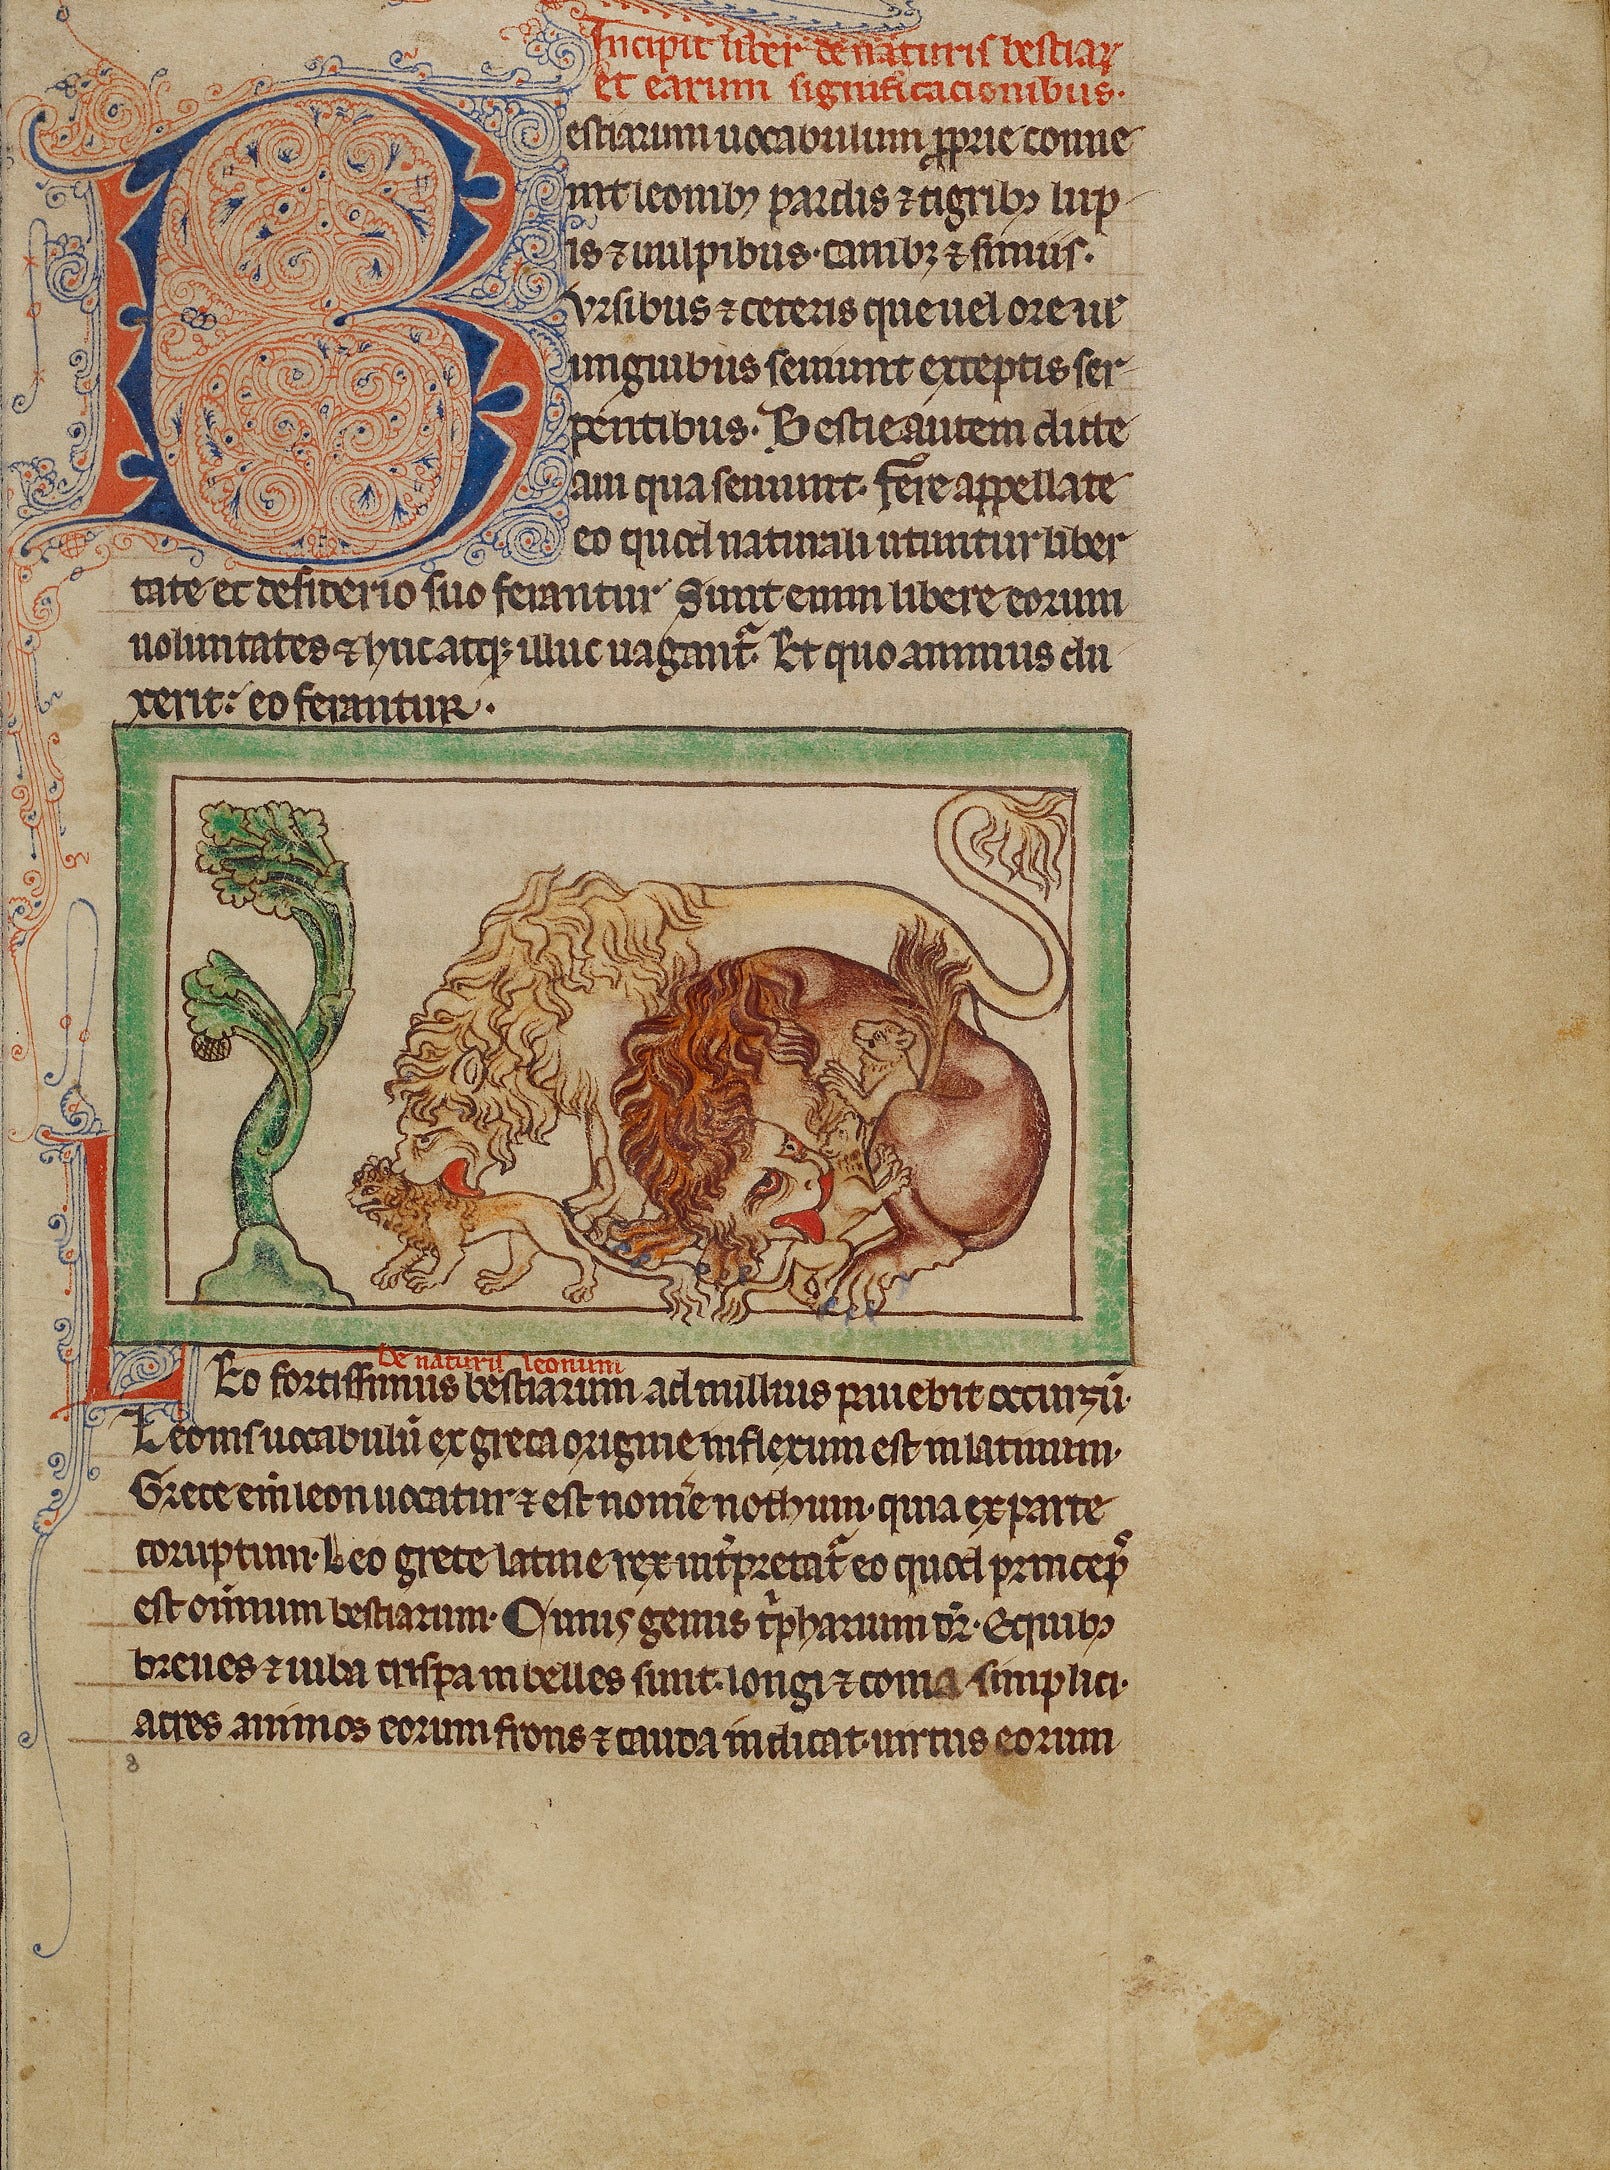 Incipit liber de naturis bestiaꝝ
et earum significacionibus.
Bestiarum uocabulum ꝓprie conue
nit leonibꝫ pardis ⁊ tigribꝫ lup
is ⁊ uulpibus. canibꝫ ⁊ simiis.
Vrsibus ⁊ ceteris que uel ore uel
unguibus seuiunt exceptis ser
pentibus. Bestie autem dicte
qua seuiunt. fere appellate
eo quod naturali utuntur liber
tate et desiderio suo ferantur Sunt enim libere eorum
uoluntates ⁊ huc atqꝫ illuc uagant᷑. Et quo animus du
xerit: eo ferantur.
De naturis leonum
Leo fortissimus bestiarum ad nullius pauebit occursū.
Leonis uocabulū ex greca origine inflexum est in latinum.
Grece eni leon uocatur ⁊ est nomē nothum. quia ex parte
coruptum. Leo grece latine rex int̉pretat᷑ eo quod princeps
est omnium bestiarum. Cuius genus pharium dr̄. Equibꝫ
breues ⁊ iuba crispa inbelles sunt. longi ⁊ coma simplici.
acres animos eorum frons ⁊ cauda indicat. uirtus eorum
8